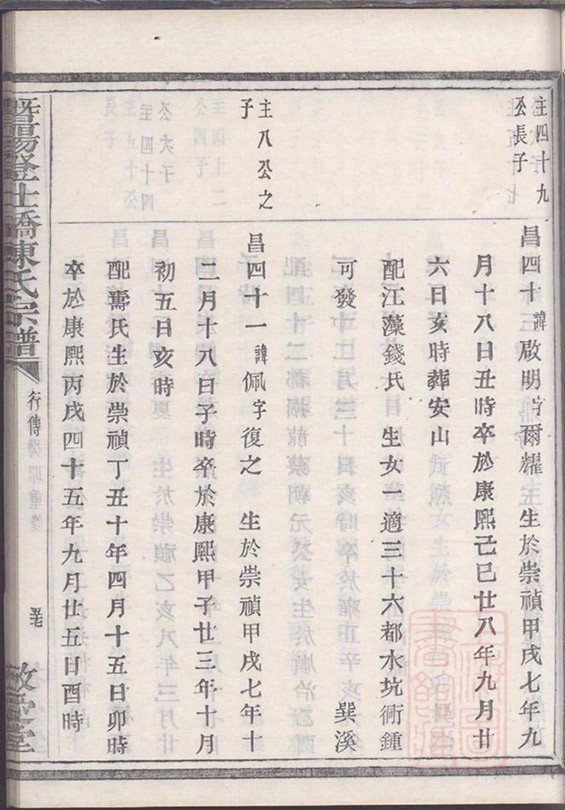 圭四十九
公長子
昌四十諱啟明字爾耀　生於崇禎甲戌七年九
月十八日丑時卒於康熙己巳廿八年九月廿
六日亥時葬安山
配江藻錢氏　生女一適三十六都水坑衕鍾
可發　巽溪
圭八公之
子
昌四十一諱佩字復之　生於崇禎甲戌七年十
二月十八日子時卒於康熙甲子廿三年十月
初五日亥時
配壽氏生於崇禎丁丑十年四月十五日卯時
卒於康熙丙戌四十五年九月廿五日酉時
暨陽登仕橋陳氏宗譜
行傳
敬愛堂